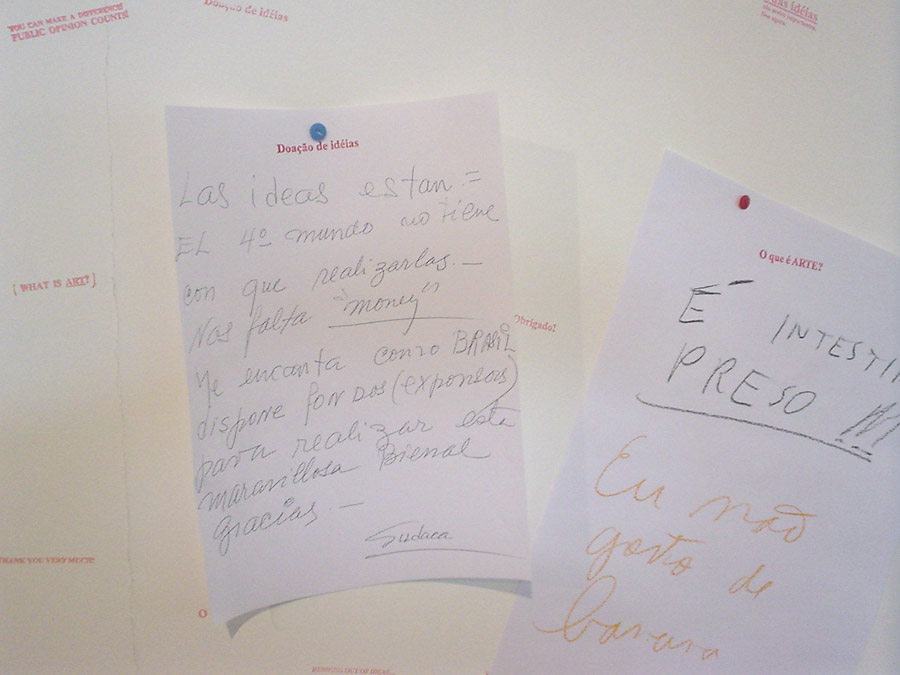 YOU CAN MAKE A DIFFERENCE!
PUBLIC OPINION COUNTS!
Doação de idéias
idéias
[ WHAT IS ART? ]
THANK YOU VERY MUCH!
O
Doação de idéias
Las ideas estan =
EL 4º mundo no tiene
con que realizarlas. —
Nos falta "money"
Me encanta como BRASIL
dispone fonDos (exponsors)
para realizar esta
maravillosa Bienal
gracias —
Sudaca
Obrigado!
O que é ARTE?
É INTESTI
PRESO !!!
Eu não
gosto de
banana
RUNNING OUT OF IDEAS...